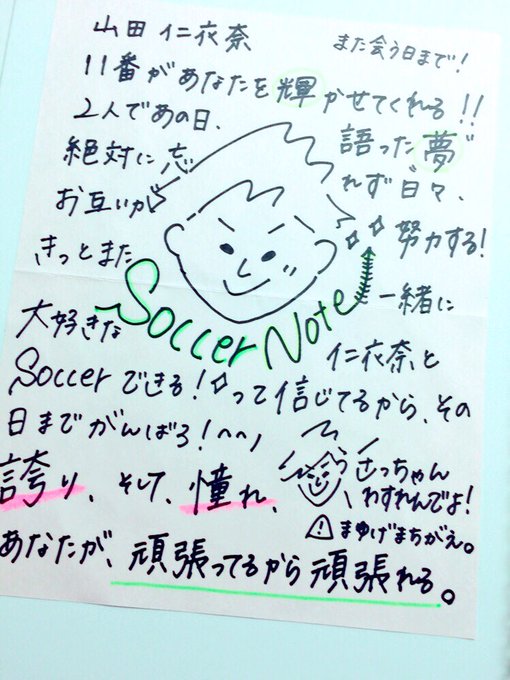 山田 仁衣奈 また会う日まで!
11番があなたを輝かせてくれる!!
2人であの日、語った夢
絶対に忘れず日々、
お互いが努力する!
きっとまた一緒に
Soccer Note
大好きな仁衣奈と
Soccerできる!って信じてるから、その
日までがんばろ!^^ノ
誇り、そして、憧れ、
さっちゃん
わすれんでよ!
まゆげまちがえ。
あなたが、頑張ってるから頑張れる。